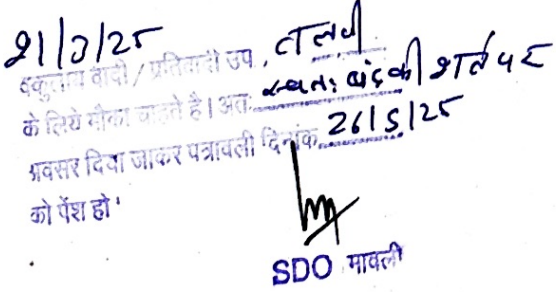 21/3/25
वकुलाय वादी / प्रतिवादी उप. तलवी
के लिये मौका चाहते है। अतः स्वतः बंद की शर्त पर
अवसर दिया जाकर पत्रावली दिनांक 26/5/25
को पेंश हो'
SDO मावली